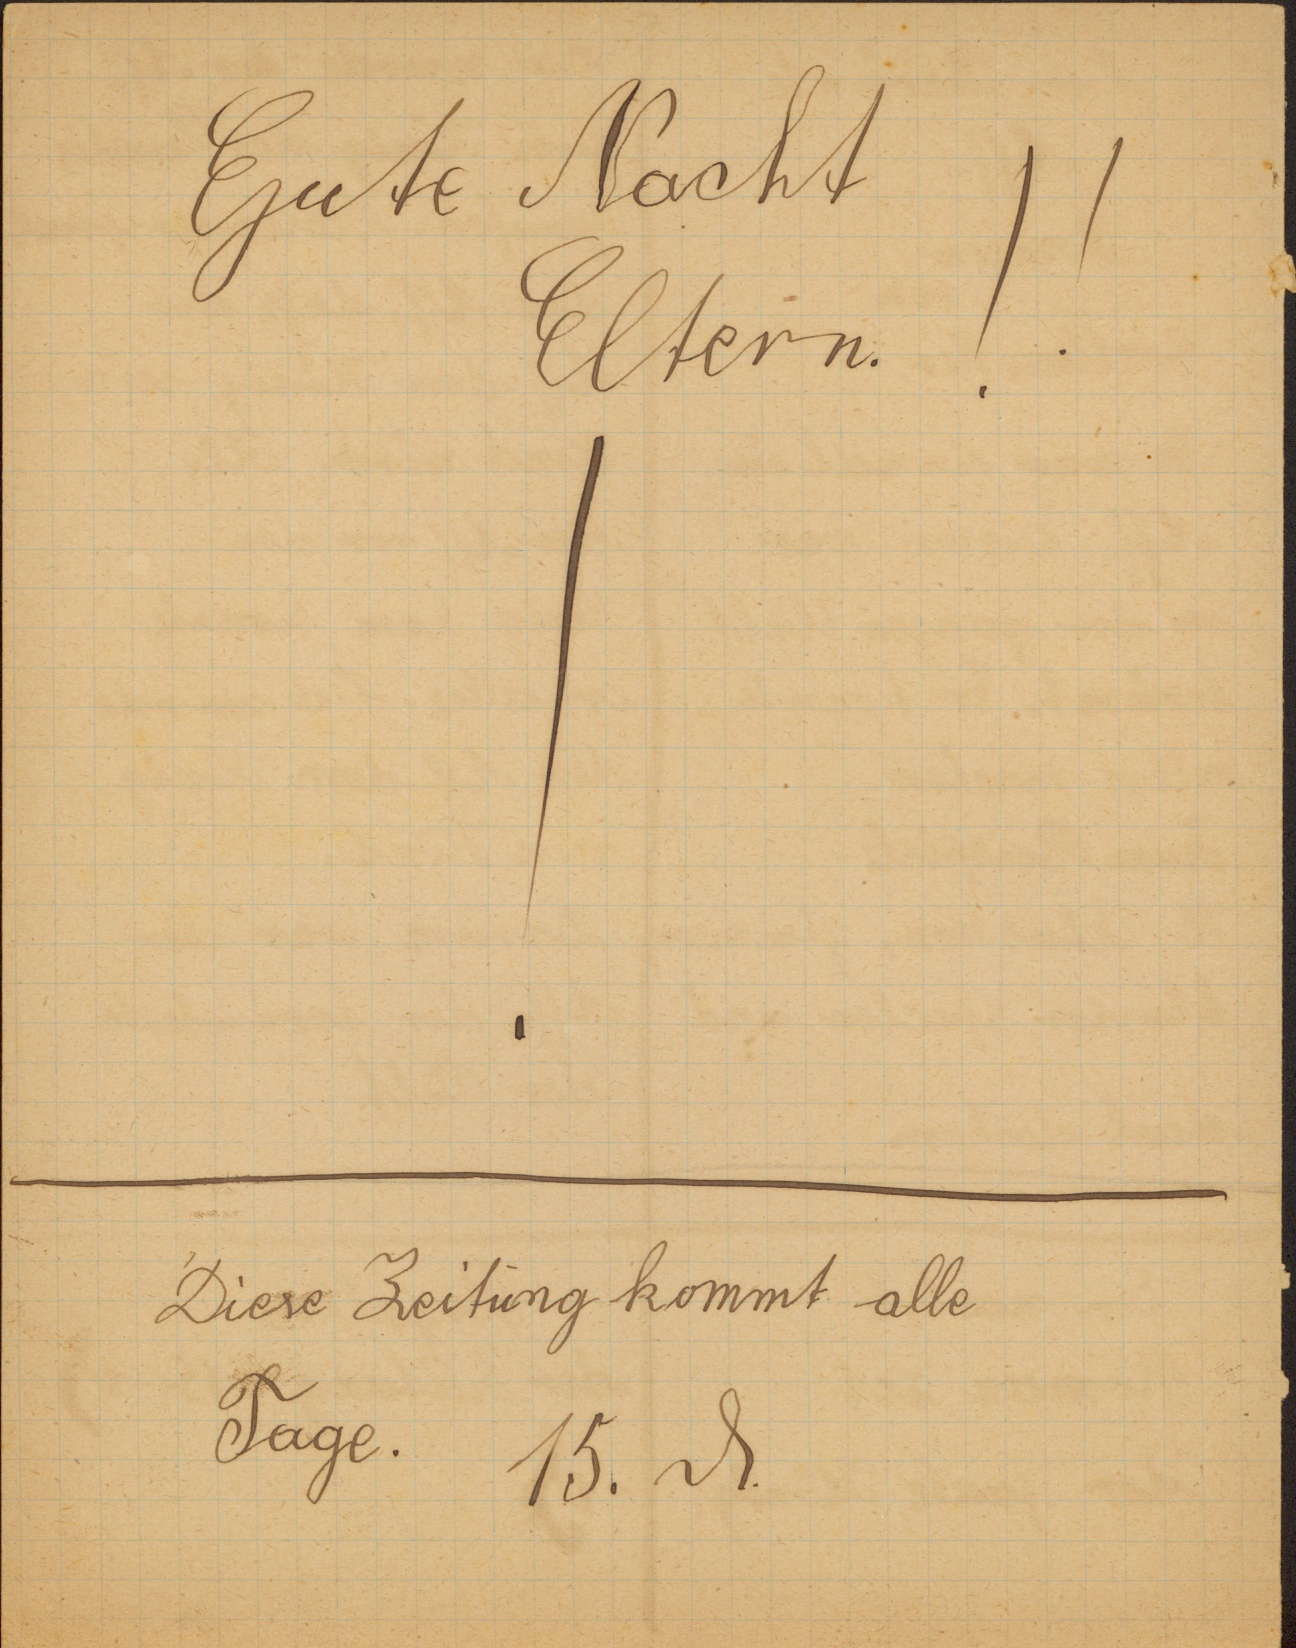 Gute Nacht !!
Eltern.
!
Diese Zeitung kommt alle
Tage. 15.